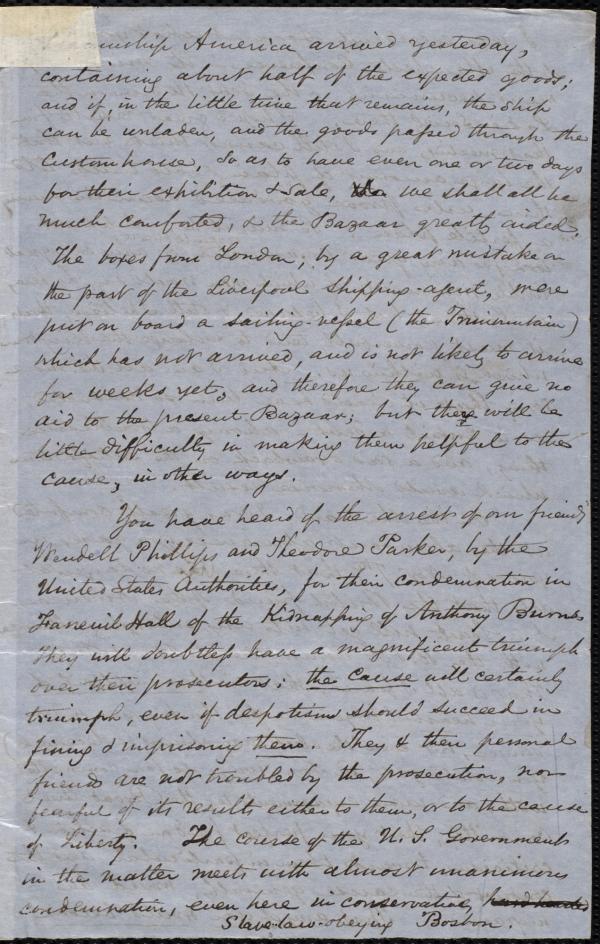 Steamship America arrived yesterday,
containing about half of the expected goods;
and if, in the little time that remains, the ship
can be unladen, and the goods passed through the
Customhouse, so as to have even one or two days
for their exhibition & sale, we shall all be
much comforted, & the Bazaar greatly aided.
The boxes from London, by a great mistake on
the part of the Liverpool shipping-agent, were
put on board a sailing-vessel (the Trimountain)
which has not arrived, and is not likely to arrive
for weeks yet, and therefore they can give no
aid to the present Bazaar; but there will be
little difficulty in making them helpful to the
cause, in other ways.
You have heard of the arrest of our friends
Wendell Phillips and Theodore Parker, by the
United States Authorities, for their condemnation in
Faneuil Hall of the Kidnapping of Anthony Burns
They will doubtless have a magnificent triumph
over their prosecutors; the cause will certainly
triumph, even if despotism should succeed in
fining & imprisoning them. They & their personal
friends are not troubled by the prosecution, nor
fearful of its results either to them, or to the cause
of Liberty. The course of the U. S. Government
in the matter meets with almost unanimous
condemnation, even here in conservative,
Slave-law-obeying Boston.